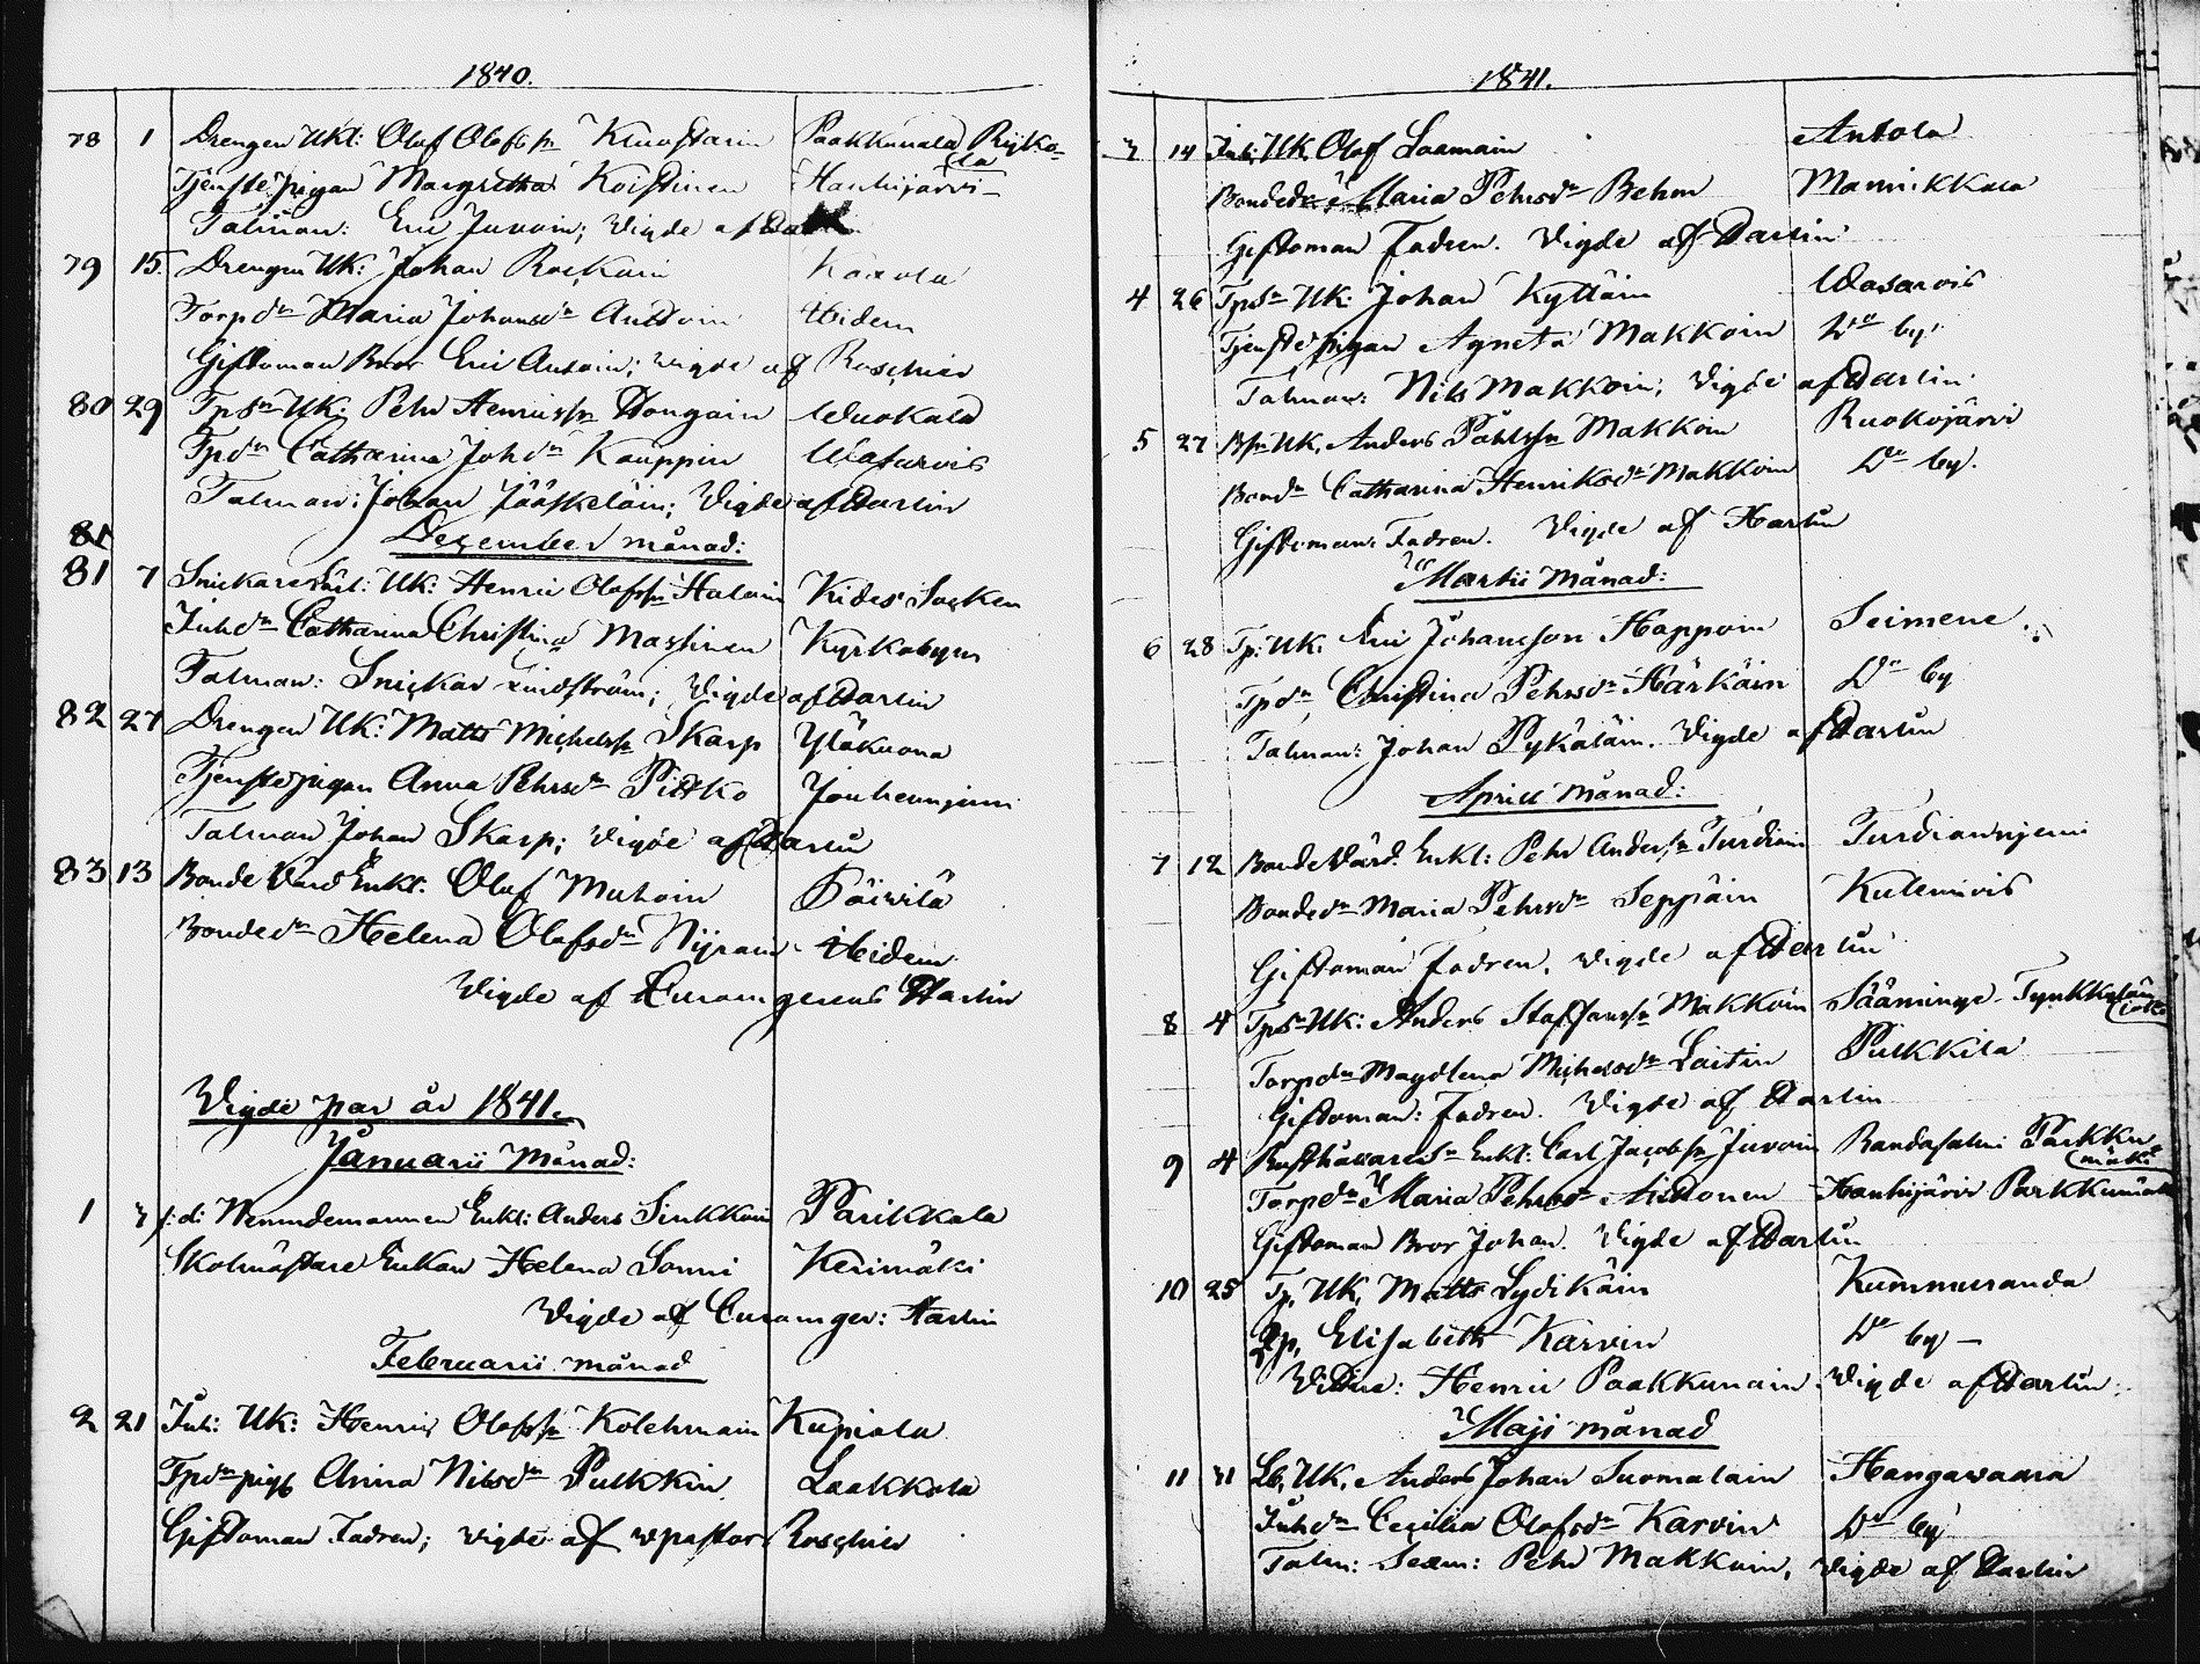 1840.
78 1 Drengen UKl: Olof Olofssn Kuustarin Paakkunala Rijko-
la
Tjenstepigan Margretha Koistinen Hanhijärvi
Talman: Eric Juvoin; Vigde af
79 15. Drengen UK: Johan Roskain Koxola
Torpdn Maria Johansdn Auvoin Ibidem
Giftoman Bror Eric Auvoin; vigde af Roschier
80 29 Tpsn UK: Pehr Henricssn Hongain Wuokala
Tpdn Catharina Johdn Kauppin
Talman: Johan Jääskeläin; Vigde af Harlin
81
December månad:
81 7 Snickare Lärl: UK: Henric Olofssn Haloin Kides Socken
Inhdn Catharina Christina Martinen Kyrkobyn
Talman: Snickar Lindström; Vigde af Harlin
82 27 Drengen UK: Matts Michelssn Skarp Yläkuona
Tjenstepigan Anna Pehrsdn Pitko Jouhenniemi
Talman Johan Skarp; Vigde af Harlin
83 13 Bonde Värd Enkl: Olof Muhoin Päivilä
Bondedn Helena Olofsdn Nijrain Ibidem
Vigde af Curam gerens Harlin
Vigde par år 1841.
Januarii Månad:
1 7 f: d: Nemndemannen Enkl: Anders Sinkkoin Parikkala
Skolmästare Enkan Helena Sonni Kerimäki
Vigde af Curam ger: Harlin
Februarii månad
2 21 Inh: UK: Henric Olofssn Kolehmain Kupiala
Tpdn pig Anna Nilsdn Pulkkin Laakkola
Giftoman Fadren; vigde af vpastor Roschier
1841.
3 14 Inh: UK, Olof Laamain Antola
Bondedr Maria Pehrsdn Behm Mannikkala
Giftoman Fadren. Vigde af Harlin
4 26 Tpsn UK: Johan Kyttäin
Tjenstepigan Agneta Makkoin Do by
Talman: Nils Makkoin; Vigde af Harlin
5 27 Bsn UK, Anders Påhlssn Makkoin Ruokojärvi
Bondn Catharina Henriksdn Makkoin Do by.
Giftoman: Fadren. Vigde af Harlin
Martii Månad:
6 28 Tp: UK: Eric Johansson Happoin Seimene
Tpdn Christina Pehrsdn Härkäin Do by
Talman: Johan Pykäläin. Vigde af Harlin
Aprill Månad:
7 12 Bonde Värd. Enkl: Pehr Anderssn Turdiain Turdianniemi
Bondedn Maria Pehrsdn Seppäin
Giftoman Fadren. Vigde af Harlin
8 4 Tpsn UK: Anders Staffanssn Makkoin Sääminge Tynkkylän
joki
Torpdn Magdlena Michelsdn Laitin Pulkkila
Giftoman: Fadren. Vigde af Harlin
9 4 Rusthåwaresn Enkl: Carl Jacobssn Juvoin Randasalmi Parkku
mäki
Torpdn Maria Pehrsdn Hanhijärvi Parkkumäki
Giftoman Bror Johan. Vigde af Harlin
10 25 Tp, UK, Matts Lydikäin Kummuranda
Tp, Elisabeth Karvin Do by —
Vittne: Henric Paakkunain. Vigde af Harlin.
Maji månad
11 31 Lb, UK, Anders Johan Suomalain Hangawaara
Inhdn Cecilia Olofsdn Karvin Do by
Talm: Sexm: Pehr Makkoin, Vigde af Harlin